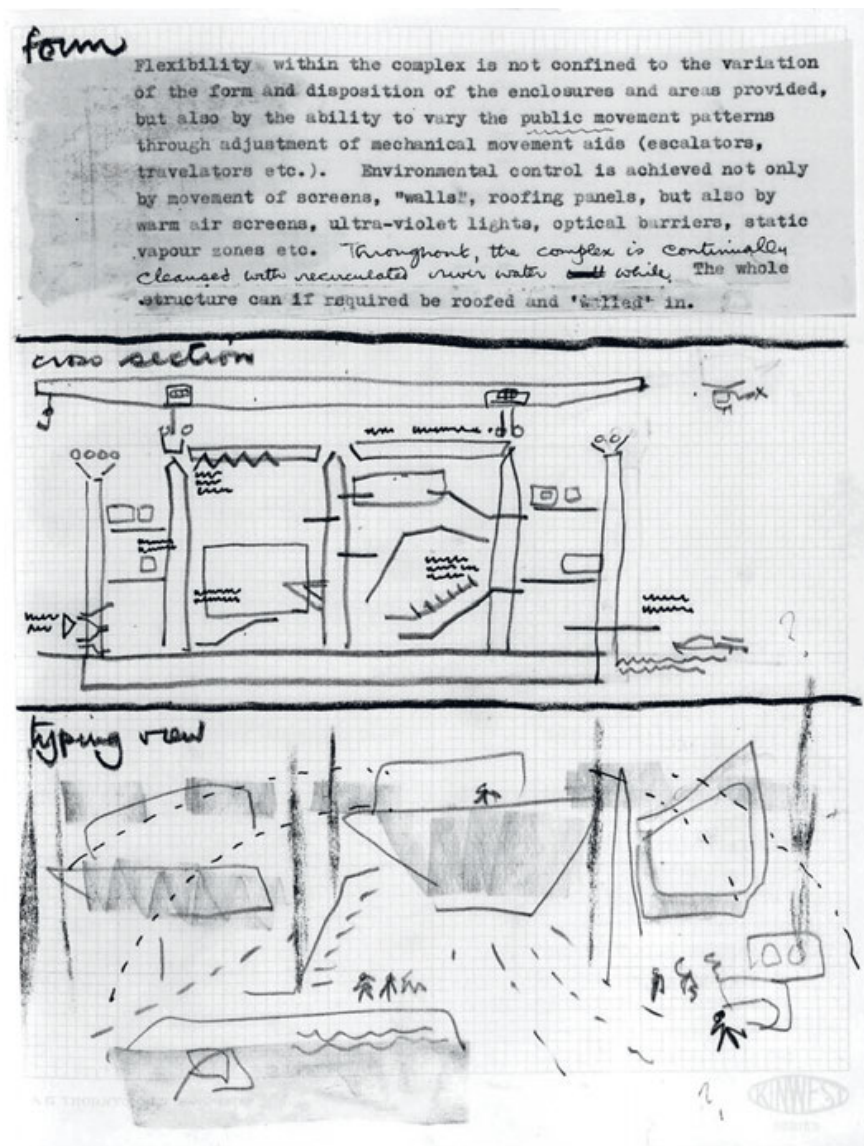 form
Flexibility within the complex is not confined to the variation
of the form and disposition of the enclosures and areas provided,
but also by the ability to vary the public movement patterns
through adjustment of mechanical movement aids (escalators,
travelators etc.). Environmental control is achieved not only
by movement of screens, "walls", roofing panels, but also by
warm air screens, ultra-violet lights, optical barriers, static
vapour zones etc. Throughout, the complex is continually
cleansed with recirculated river water while The whole
structure can if required be roofed and 'walled' in.
cross section
?
typing view
?
KINWEST
SERIES